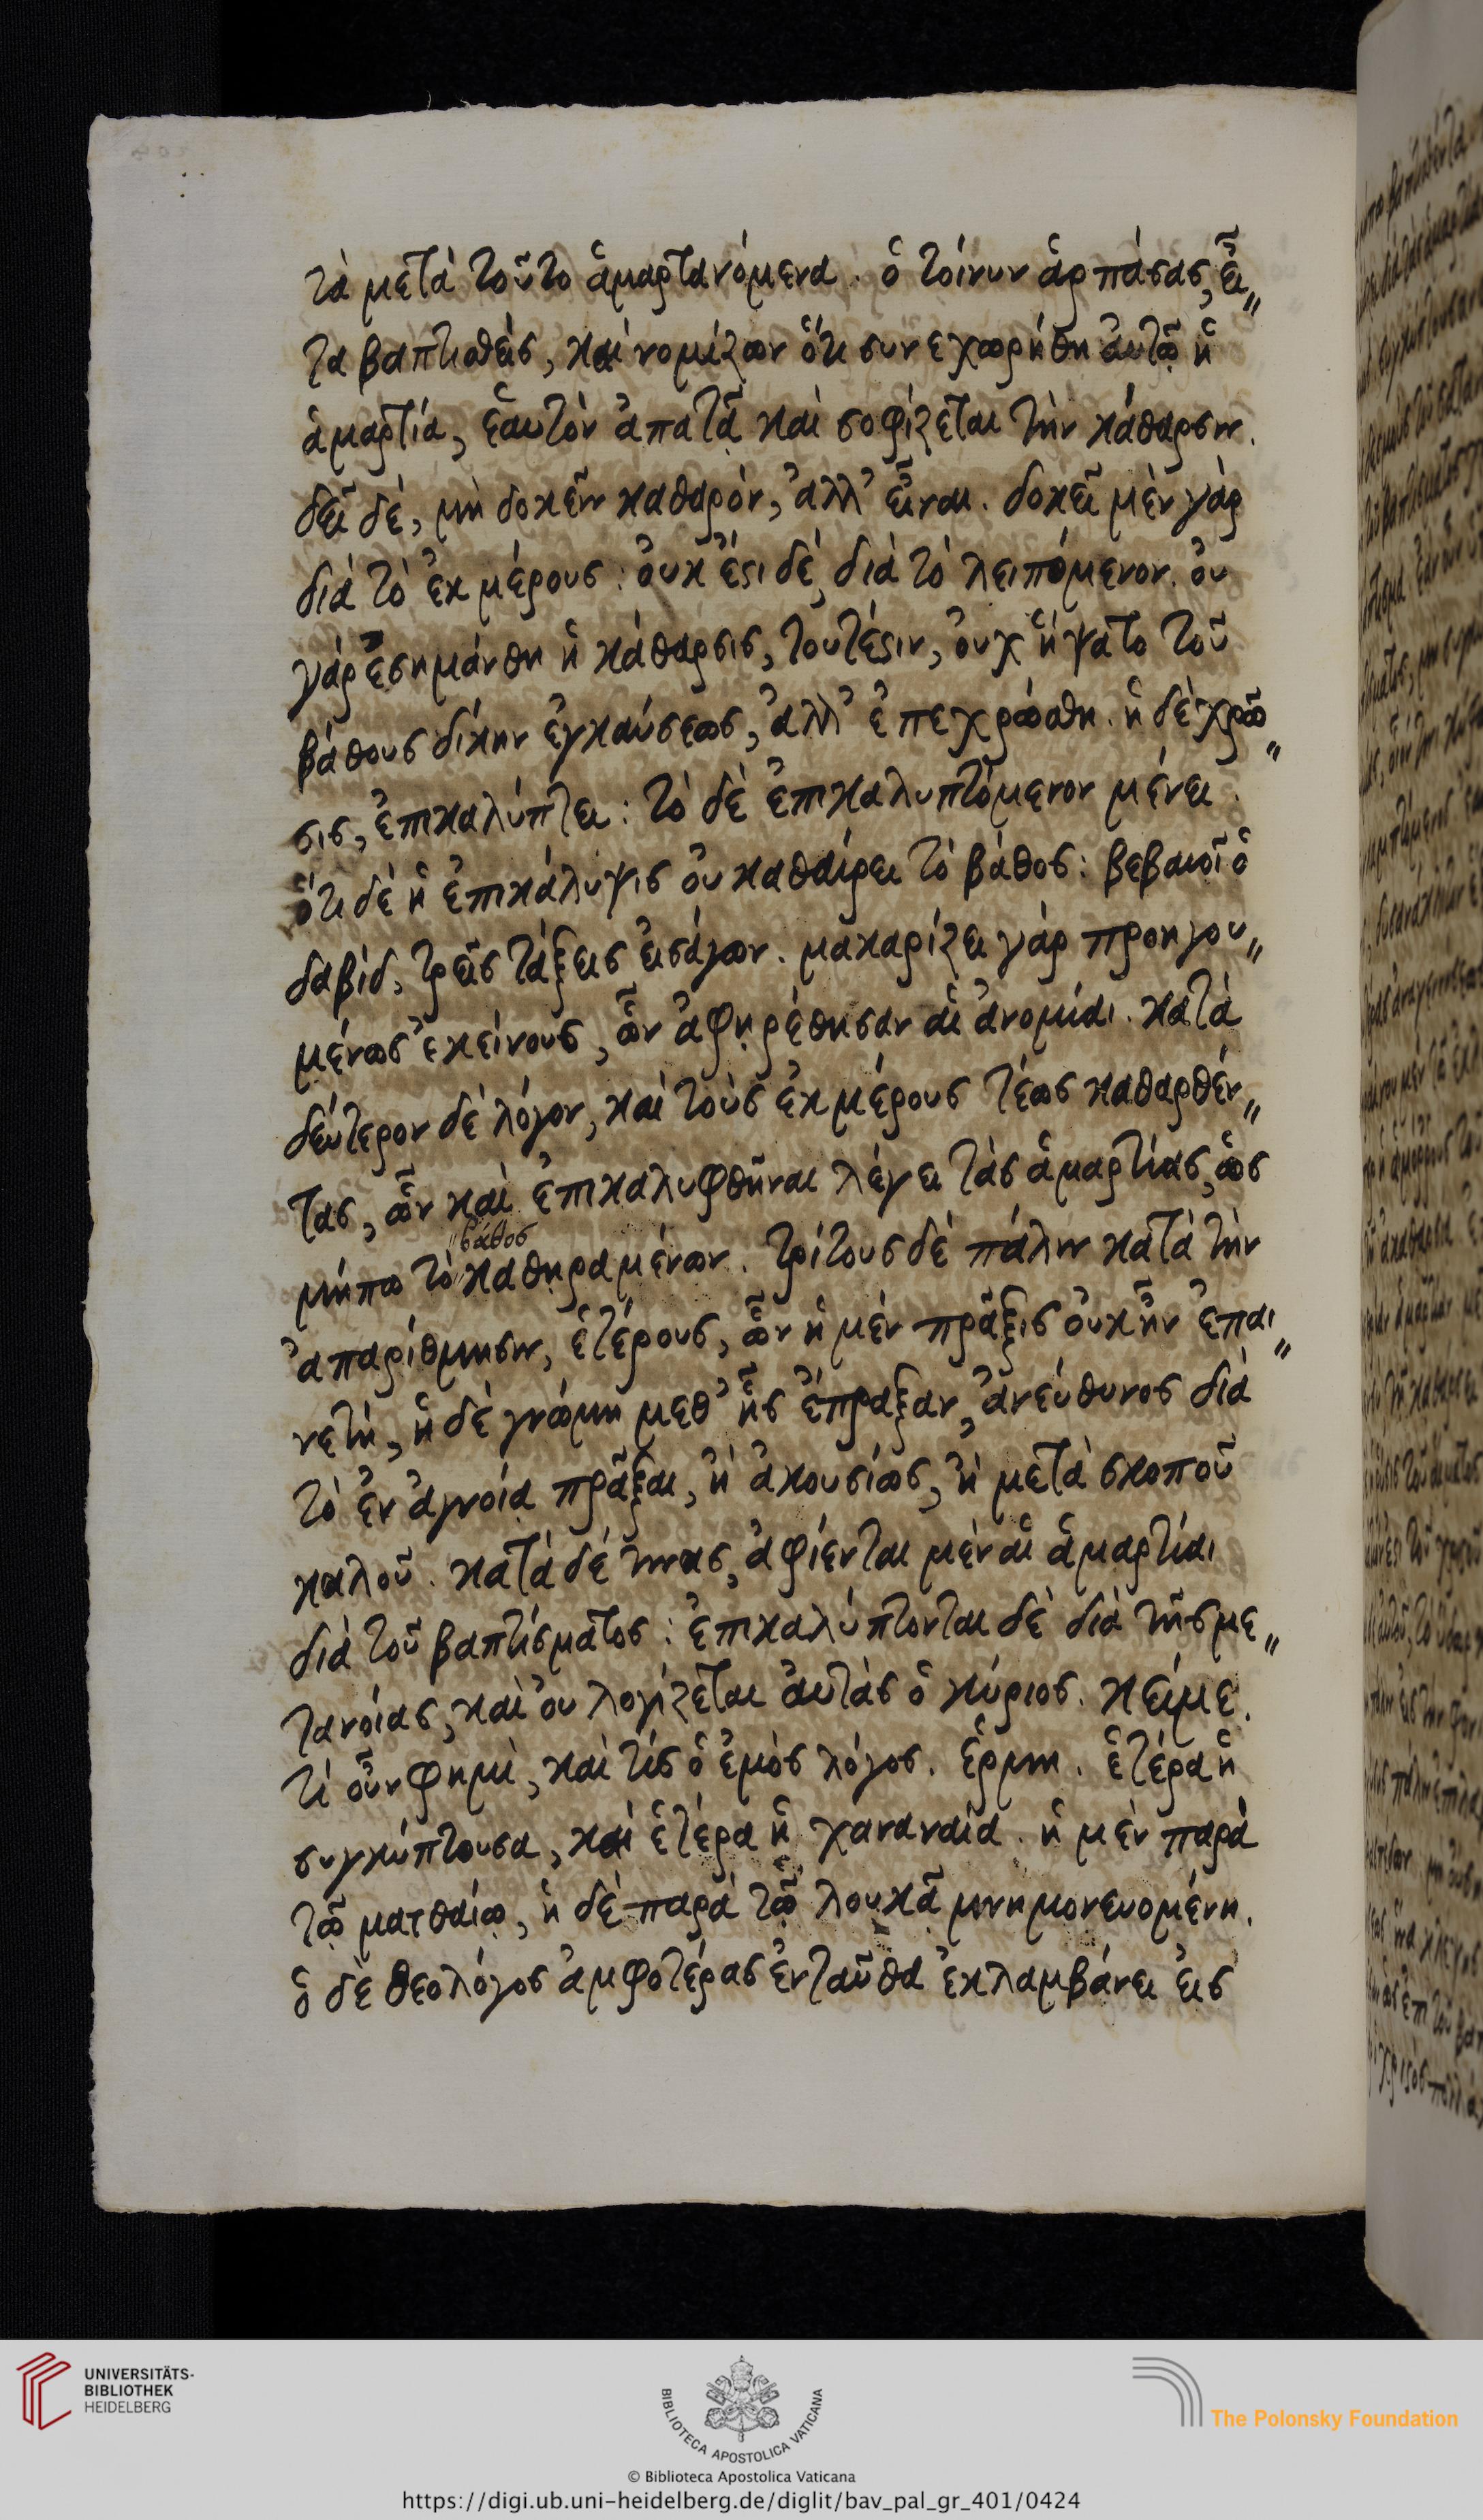 τὰ μετὰ τοῦτο ἁμαρτανόμενα. ὁ τοίνυν ἁρπάσας, εἶ〃
τα βαπτισθεὶς, καὶ νομίζων ὅτι συνεχωρήθη αὐτῷ ἡ
ἁμαρτία, ἑαυτὸν ἀπατᾷ καὶ σοφίζεται τὴν κάθαρσιν.
δεῖ δέ, μὴ δοκεῖν καθαρόν, ἀλλ' εἶναι. δοκεῖ μὲν γὰρ
διὰ τὸ ἐκ μέρους: οὐκ ἔστι δὲ, διὰ τὸ λειπόμενον. οὐ
γὰρ ἐσημάνθη ἡ κάθαρσις, τουτέστιν, οὐχ ἥψατο τοῦ
βάθους δίκην ἐγκαύσεως, ἀλλ' ἐπεχρώσθη. ἡ δὲ χρῶ〃
σις, ἐπικαλύπτει: τὸ δὲ ἐπικαλυπτόμενον μένει.
ὅτι δὲ ἡ ἐπικάλυψις οὐ καθαίρει τὸ βάθος: βεβαιοῖ ὁ
δαβίδ, τρεῖς τάξεις εἰσάγων. μακαρίζει γὰρ προηγου〃
μένως ἐκείνους, ὧν ἀφῃρέθησαν αἱ ἀνομίαι. κατὰ
δεύτερον δὲ λόγον, καὶ τοὺς ἐκ μέρους τέως καθαρθέν〃
τας, ὧν καὶ ἐπικαλυφθῆναι λέγει τὰς ἁμαρτίας, ὡς
〃βάθος
μήπω τὸ〃 καθῃραμένων. τρίτους δὲ πάλιν κατὰ τὴν
ἀπαρίθμησιν, ἑτέρους, ὧν ἡ μὲν πρᾶξις οὐκ ἦν ἐπαι〃
νετή, ἡ δὲ γνώμη μεθ' ἧς ἔπραξαν, ἀνεύθυνος διὰ
τὸ ἐν ἀγνοίᾳ πρᾶξαι, ἢ ἀκουσίως, ἢ μετὰ σκοποῦ
καλοῦ. κατὰ δέ τινας, ἀφίενται μὲν αἱ ἁμαρτίαι
διὰ τοῦ βαπτίσματος: ἐπικαλύπτονται δὲ διὰ τῆς με〃
τανοίας, καὶ οὐ λογίζεται αὐτὰς ὁ κύριος. κείμε.
τί οὖν φημὶ, καὶ τίς ὁ ἐμὸς λόγος. ἑρμη. ἑτέρα ἡ
συγκύπτουσα, καὶ ἑτέρα ἡ χαναναία. ἡ μὲν παρὰ
τῷ ματθαίῳ, ἡ δὲ παρὰ τῷ λουκᾷ μνημονευομένη.
ὁ δὲ θεολόγος ἀμφοτέρας ἐνταῦθα ἐκλαμβάνει εἰς
UNIVERSITÄTS-
BIBLIOTHEK
HEIDELBERG
BIBLIOTECA APOSTOLICA VATICANA
The Polonsky Foundation
© Biblioteca Apostolica Vaticana
https://digi.ub.uni-heidelberg.de/diglit/bav_pal_gr_401/0424